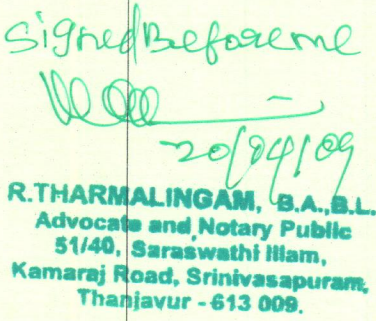 Signed Before me
20/04/09
R.THARMALINGAM, B.A.,B.L.
Advocate and Notary Public
51/40, Saraswathi Illam,
Kamaraj Road, Srinivasapuram,
Thanjavur - 613 009.